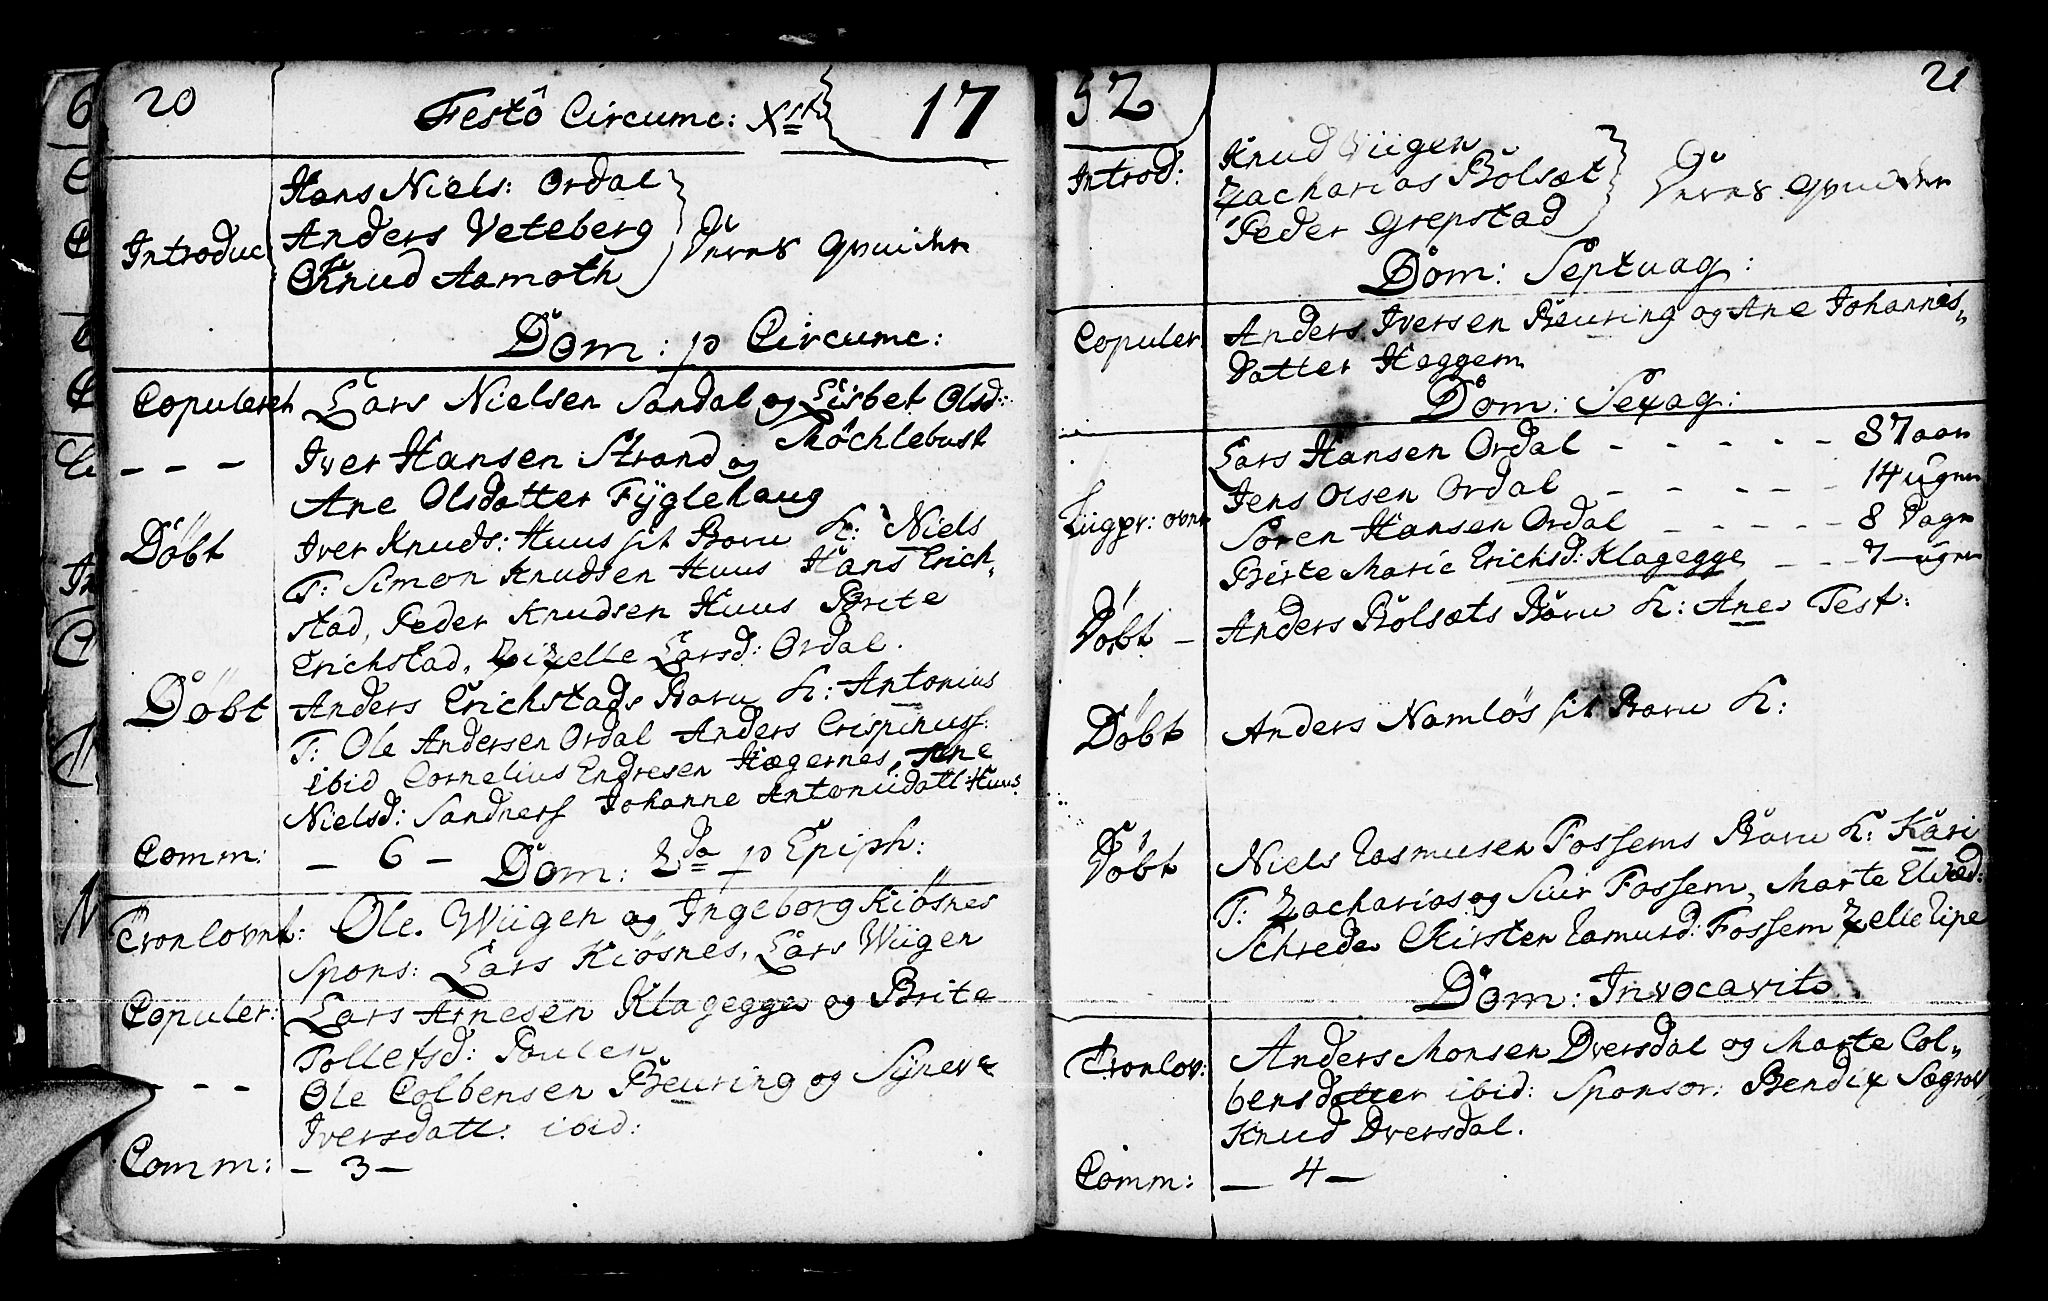 20 Festô Circumc: Xsti 17
Hans Niels: Ordal
Anders Veteberg
Introduc Knud Aamoth deres Qvinder
Dom: p Circumc:
Copuleret Lars Nielsen Sandal og Lisbet Olsd:
Møchlebust
- - - Iver Hansen Strand og
Ane Olsdatter Fÿglehaug
Døbt Iver Knuds: Huus sit Barn K: Niels
T: Simon Knudsen Huus Hans Erich-
stad, Peder Knudsen Huus Brite
Erichstad, Zizelle Larsd: Ordal.
Døbt Anders Erichstads Barn K: Antonius
T: Ole Andersen Ordal Anders Crispinuss:
ibid Cornelius Endresen Hægernes, Ane
Nielsd: Sandnerss Johanne Antonidatt: Huus
Comm: - 6 - Dom: 2da p Epiph:
Tronlovnt: Ole Wiigen og Ingeborg Kiösnes
Spons: Lars Kiösnes, Lars Wiigen
Copuler: Lars Arnesen Klagegge og Brite
Tollefsd: Poulen
- - - Ole Colbensen Beuring og Sÿneve
Iversdatt: ibid:
Comm: - 3 -
52 21
Introd: Knud Wiigen
Zacharias Bolsæt deres Qvinder
Peder Grepstad
Dom: Septuag:
Copuler Anders Iversen Beuring og Ane Johannes-
datter Heggem
Dom: Sexag:
Lars Hansen Ordal - - - - - 87 aar
Jens Olsen Ordal - - - - - 14 ugner
Liigpr: ovr Søren Hansen Ordal - - - - - 8 dagr
Birte Marie Erichsd: Klagegge - - - 7 ugner
Døbt - Anders Bolsæts Barn K: Ane Test:
Døbt Anders Namløs sit Barn K:
Døbt Niels Rasmusen Fossems Barn K: Kari
T: Zacharias og Siur Fossem, Marte Elved:
Schrede Kirsten Ramund: Fossem Zelie Ripe
Dom: Invocavit
Tronlov: Anders Monsen Dversdal og Marte Col-
bensdatter ibid: Sponsor: Bendix Søgrov
Knud Dversdal.
Comm: - 4 -